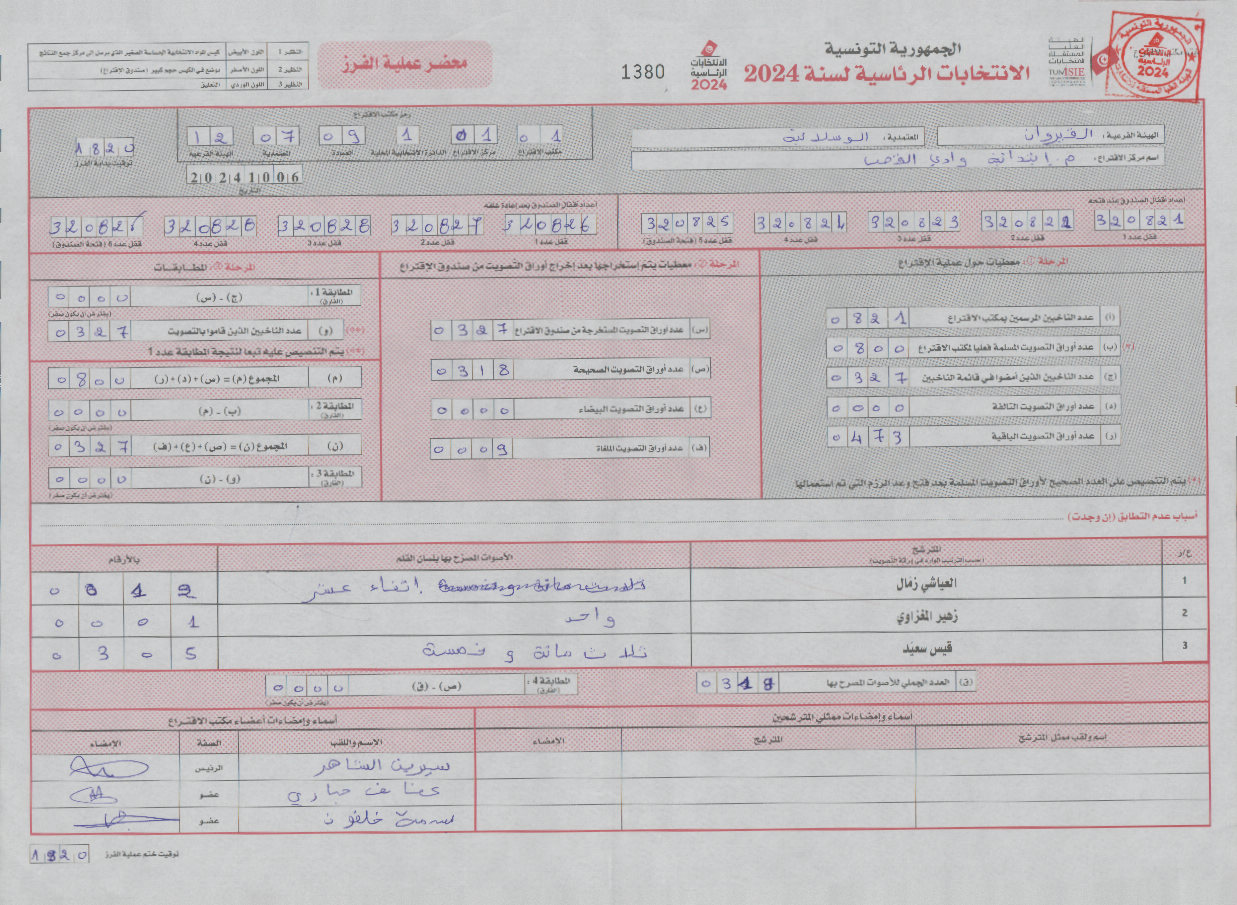 الجمهورية التونسية
الانتخابات الرئاسية لسنة 2024
الانتخابات الرئاسية 2024
1380
محضر عملية الفرز
النظير 1 اللون الأبيض
النظير 2 اللون الأصفر توضع في الكيس حجم كبير (صندوق الاقتراع)
النظير 3 اللون الوردي التعليق
الهيئة الفرعية : القيروان المعتمدية : الوسلاتية
اسم مركز الاقتراع :
رمز مكتب الاقتراع
01 01 1 09 07 12
مكتب الاقتراع مركز الاقتراع الدائرة الانتخابية المحلية العمادة المعتمدية الهيئة الفرعية
20241006
التاريخ
1820
توقيت بداية الفرز
أعداد أقفال الصندوق عند فتحه
320821 320822 320823 320824 320825
قفل عدد 1 قفل عدد 2 قفل عدد 3 قفل عدد 4 قفل عدد 5 (فتحة الصندوق)
أعداد أقفال الصندوق بعد إعادة غلقه
320826 320827 320828
قفل عدد 1 قفل عدد 2 قفل عدد 3 قفل عدد 4 قفل عدد 5 (فتحة الصندوق)
المرحلة ①: معطيات حول عملية الاقتراع
(أ) عدد الناخبين المرسمين بمكتب الاقتراع 0821
(*) (ب) عدد أوراق التصويت المسلمة فعليا لمكتب الاقتراع 0800
(ج) عدد الناخبين الذين أمضوا في قائمة الناخبين 0327
(د) عدد أوراق التصويت التالفة 0000
(ر) عدد أوراق التصويت الباقية 0473
(*) يتم التنصيص على العدد الصحيح لأوراق التصويت المسلمة بعد فتح وعد الرزم التي تم استعمالها
المرحلة ②: معطيات يتم إستخراجها بعد إخراج أوراق التصويت من صندوق الاقتراع
(س) عدد أوراق التصويت المستخرجة من صندوق الاقتراع 0327
(ص) عدد أوراق التصويت الصحيحة 0318
(ع) عدد أوراق التصويت البيضاء 0000
(ف) عدد أوراق التصويت الملغاة 0009
المرحلة ③: المطابقات
المطابقة 1 : (الفارق) (ج) - (س) 0000
(يفترض أن يكون صفر)
(**) (و) عدد الناخبين الذين قاموا بالتصويت 0327
(**) يتم التنصيص عليه تبعا لنتيجة المطابقة عدد 1
(م) المجموع (م) = (س)+(د)+(ر) 0800
المطابقة 2 : (الفارق) (ب) - (م) 0000
(يفترض أن يكون صفر)
(ن) المجموع (ن) = (ص)+(ع)+(ف) 0327
المطابقة 3 : (الفارق) (و) - (ن) 0000
(يفترض أن يكون صفر)
أسباب عدم التطابق (إن وجدت)
ع/ر المترشح الأصوات المصرح بها بلسان القلم بالأرقام
(حسب الترتيب الوارد في ورقة التصويت)
1 العياشي زمال اثناء عشر 0012
2 زهير المغزاوي واحد 0001
3 قيس سعيّد ثلاث مائة و خمسة 0305
(ق) العدد الجملي للأصوات المصرح بها 0318
المطابقة 4 : (الفارق) (ص) - (ق) 0000
(يفترض أن يكون صفر)
أسماء وإمضاءات ممثلي المترشحين
اسم ولقب ممثل المترشح المترشح الامضاء
أسماء وإمضاءات أعضاء مكتب الاقتراع
الاسم واللقب الصفة الإمضاء
سيرين الشاهر الرئيس
عفاف جباري عضو
بسمة خلفون عضو
توقيت ختم عملية الفرز